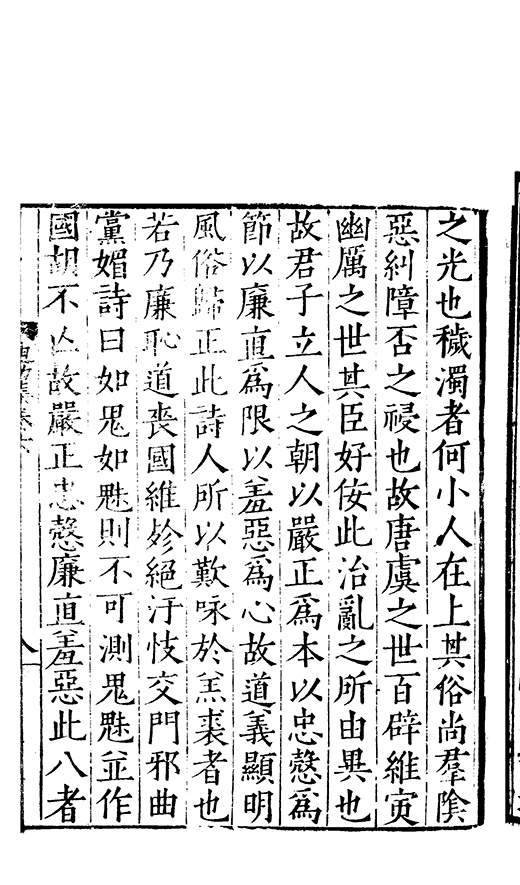 之光也穢濁者何小人在上其俗尚羣陰
惡糾障否之祲也故唐虞之世百辟維寅
幽厲之世其臣好佞此治亂之所由異也
故君子立人之朝以嚴正爲本以忠慤爲
節以廉直爲限以羞惡爲心故道義顯明
風俗歸正此詩人所以歎咏於羔裘者也
若乃廉恥道喪國維㱁絕汙忮交門邪曲
黨媢詩曰如鬼如魅則不可測鬼魅並作
國胡不亡故嚴正忠慤廉直羞惡此八者